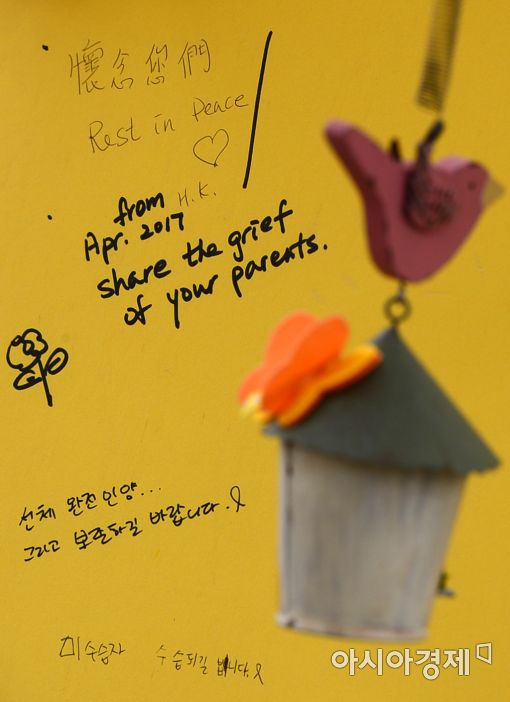 懷念您們
Rest in Peace
from H.K.
Apr. 2017
share the grief
of your parents.
선체 완전인양...
그리고 보존되길 바랍니다.
미수습자 수습되길 빕니다.
아시아경제